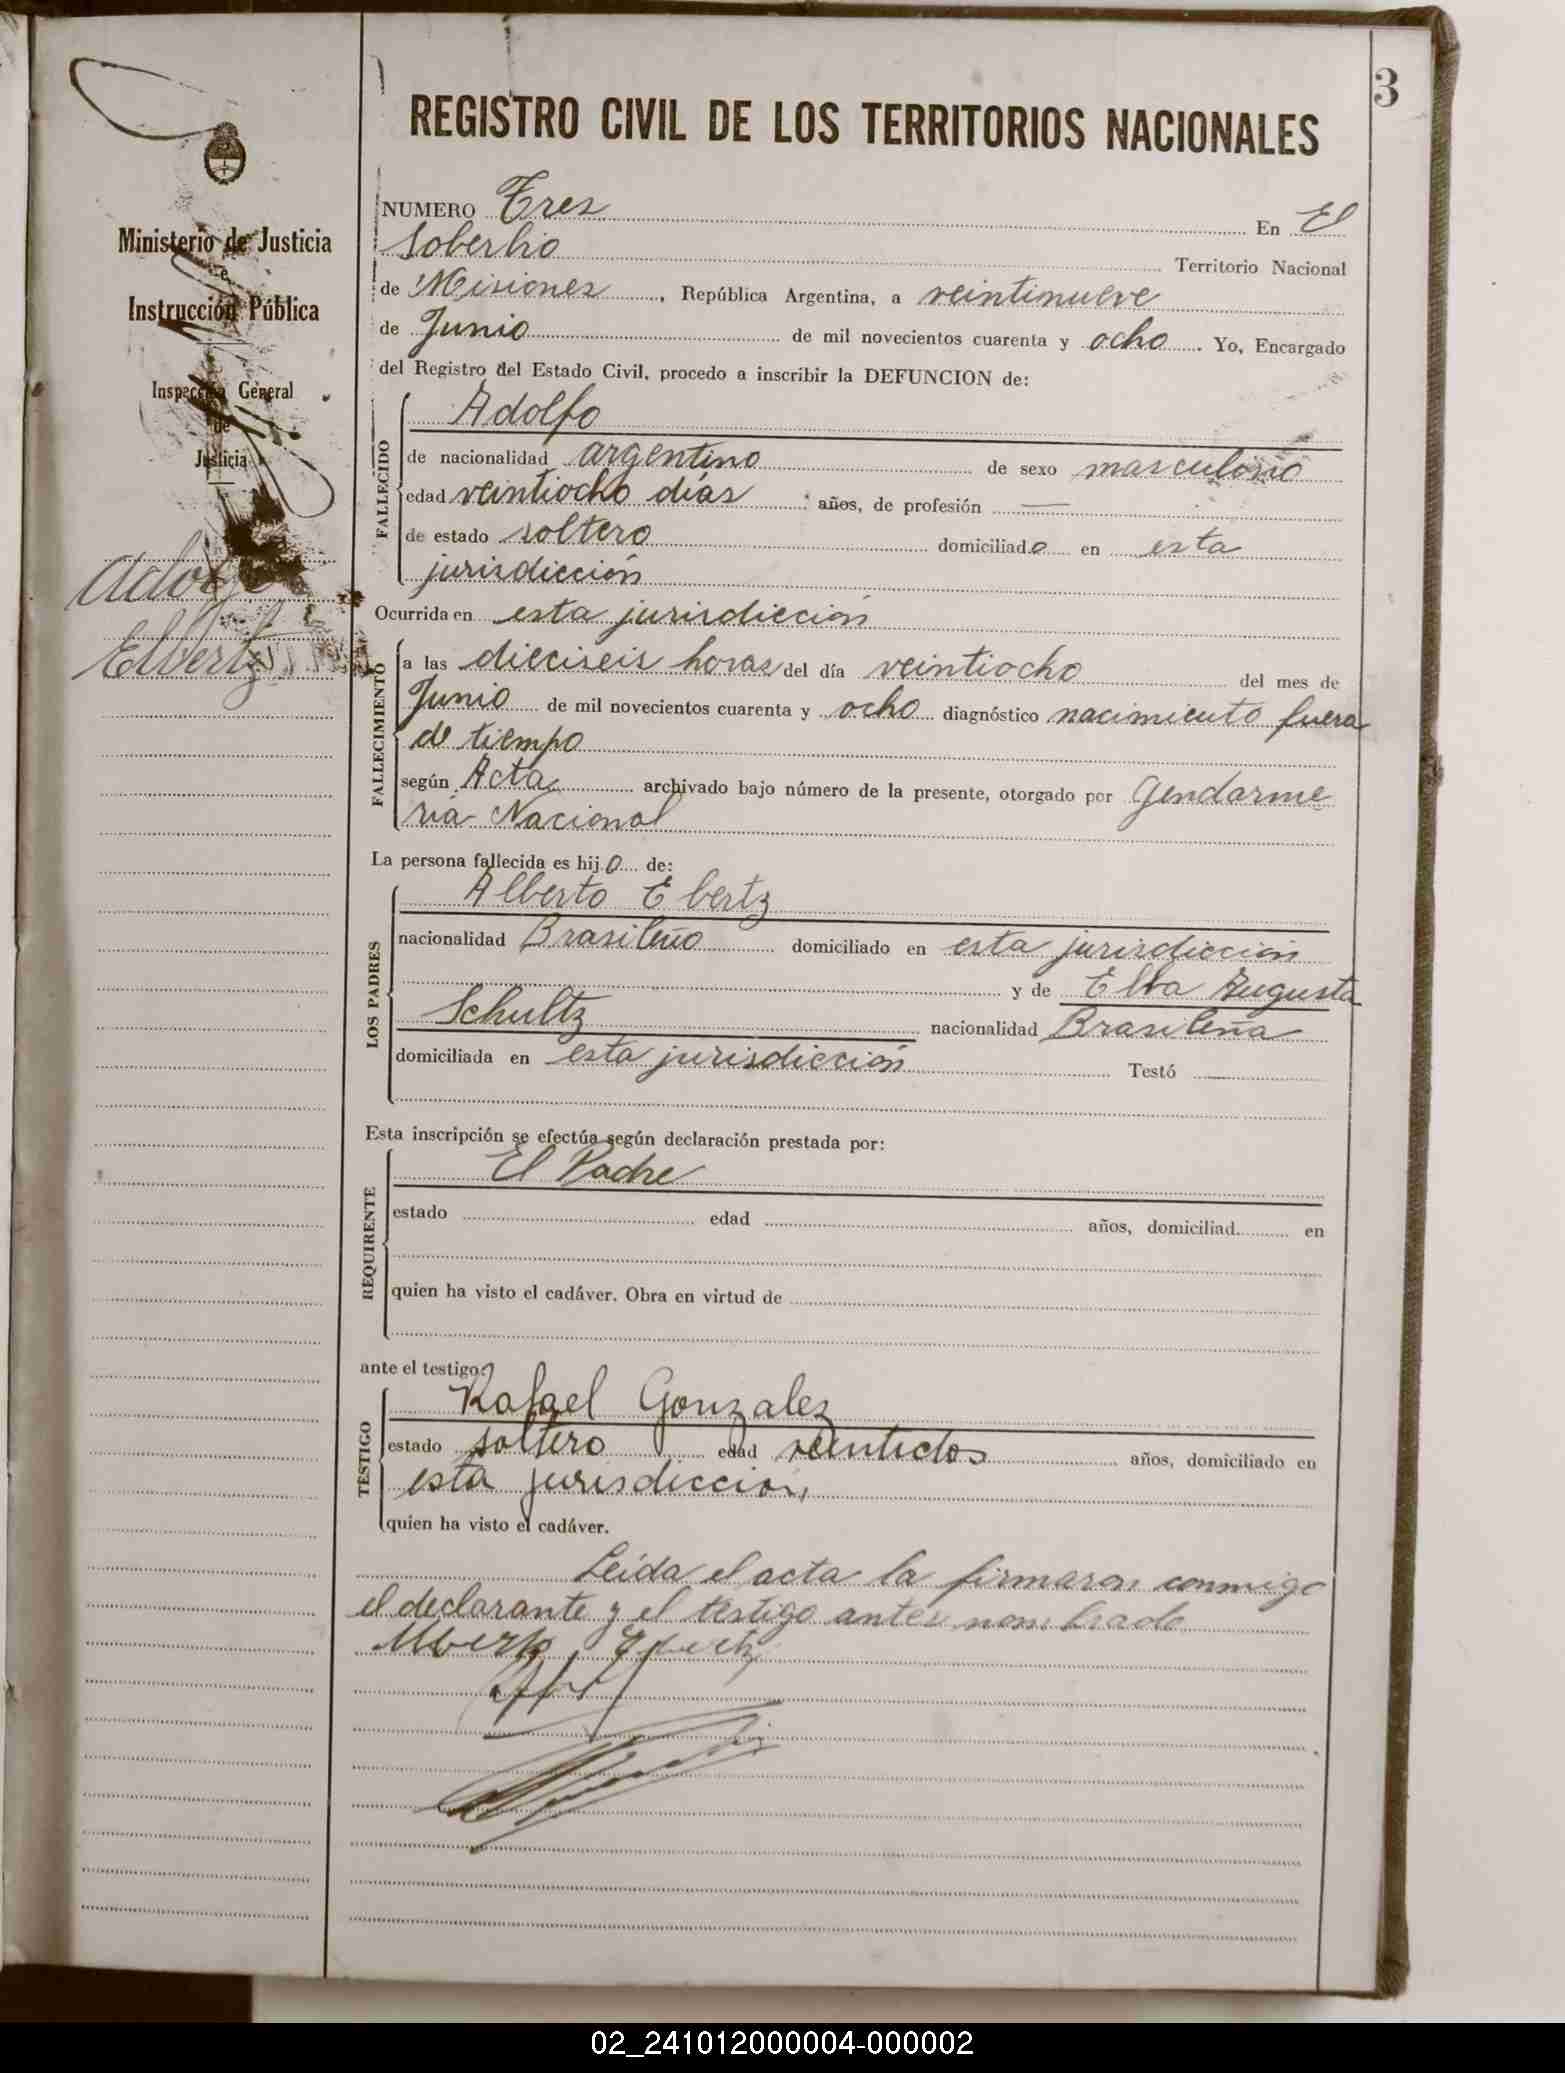 3
REGISTRO CIVIL DE LOS TERRITORIOS NACIONALES
Ministerio de Justicia
e
Instrucción Pública
Inspección General
de
Justicia
Adolfo
Elbertz
NUMERO Tres En El
Soberbio Territorio Nacional
de Misiones, República Argentina, a veintinueve
de Junio de mil novecientos cuarenta y ocho. Yo, Encargado
del Registro del Estado Civil, procedo a inscribir la DEFUNCION de:
FALLECIDO
Adolfo
de nacionalidad argentino de sexo masculino
edad veintiocho días años, de profesión —
de estado soltero domiciliado en esta
jurisdicción
Ocurrida en esta jurisdicción
FALLECIMIENTO
a las dieciseis horas del día veintiocho del mes de
Junio de mil novecientos cuarenta y ocho diagnóstico nacimiento fuera
de tiempo
según Acta archivado bajo número de la presente, otorgado por Gendarme
ría Nacional
La persona fallecida es hijo de:
LOS PADRES
Alberto Ebertz
nacionalidad Brasileño domiciliado en esta jurisdicción
y de Elba Augusta
Schultz nacionalidad Brasileña
domiciliada en esta jurisdicción Testó —
Esta inscripción se efectúa según declaración prestada por:
REQUIRENTE
El Padre
estado edad años, domiciliad en
quien ha visto el cadáver. Obra en virtud de
ante el testigo:
TESTIGO
Rafael Gonzalez
estado soltero edad veintidos años, domiciliado en
esta jurisdiccion
quien ha visto el cadáver.
Leída el acta la firmaron conmigo
el declarante y el testigo antes nombrado
Alberto Ebertz
02_241012000004-000002